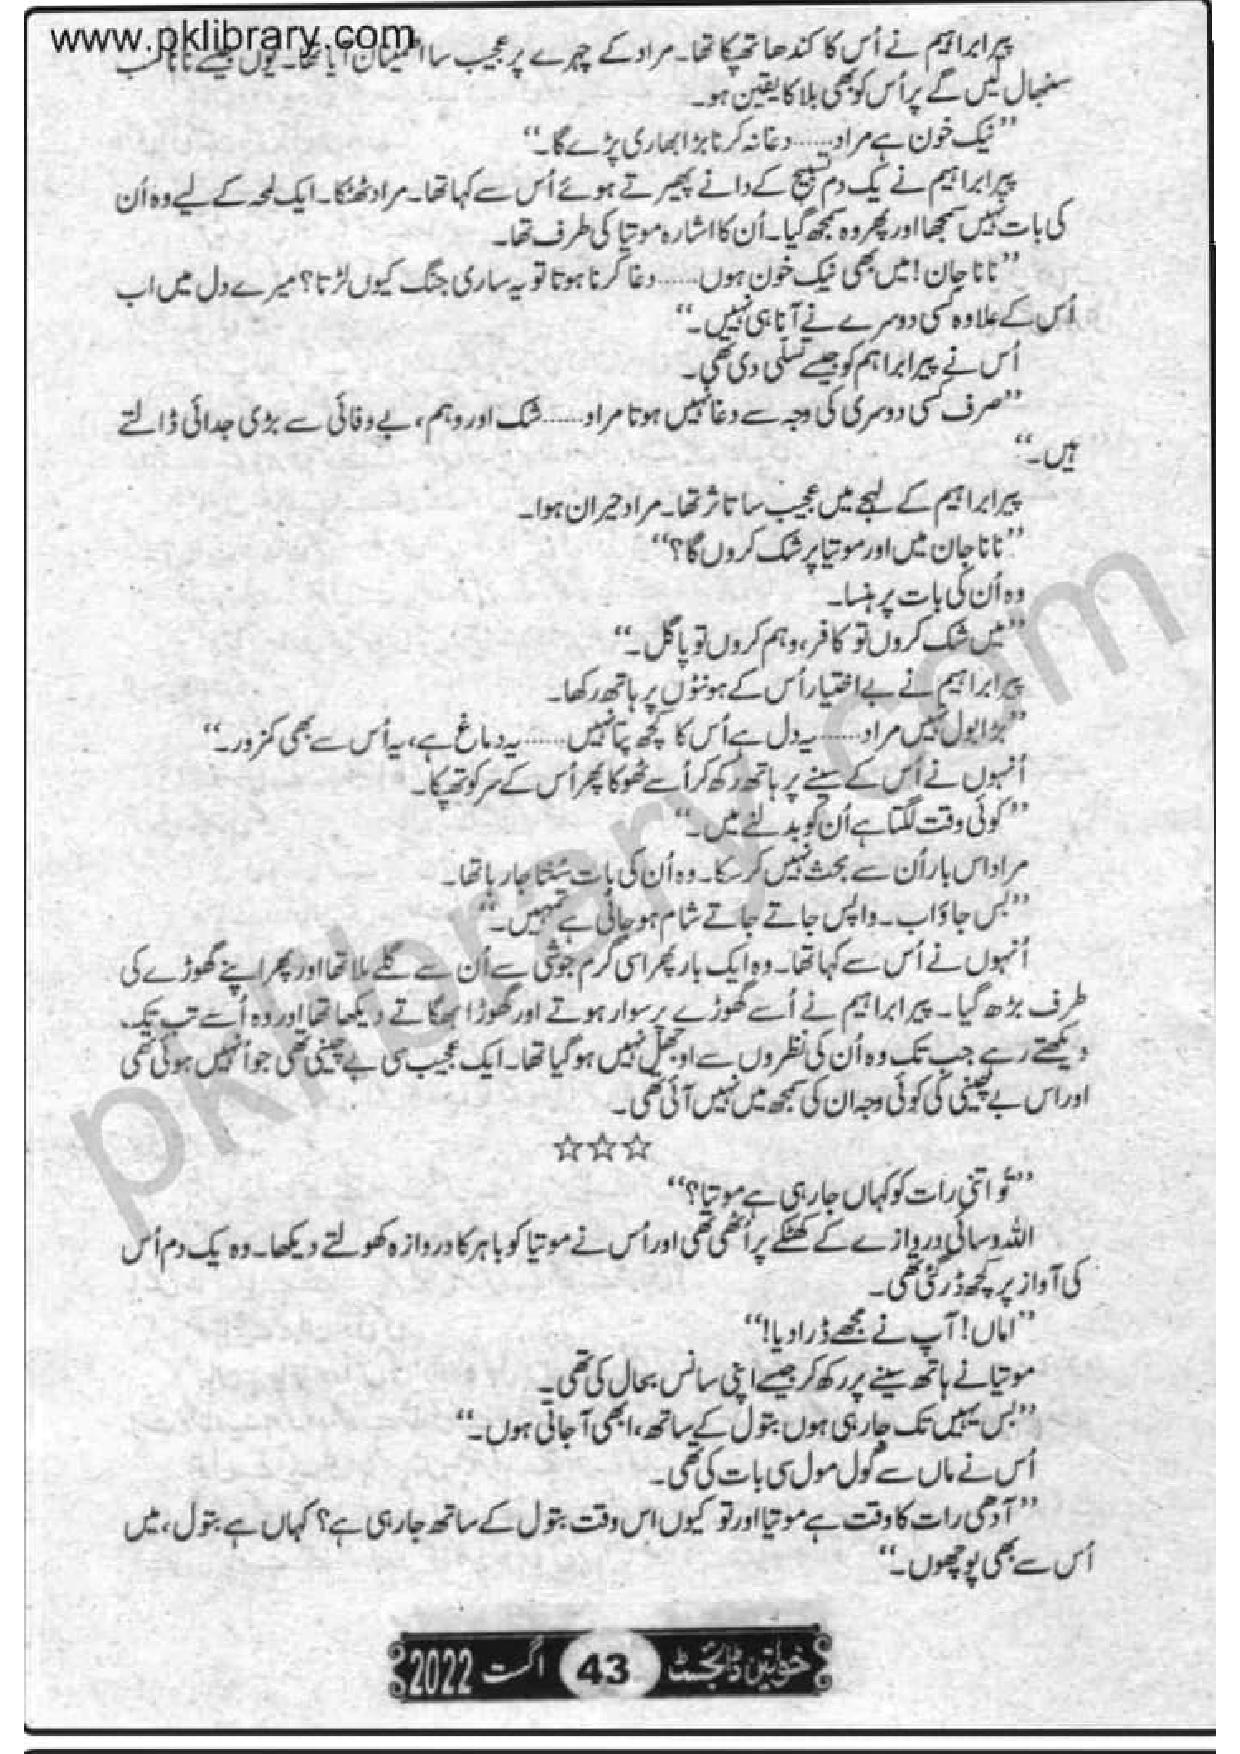 www.pklibrary.com
پیر ابراہیم نے اُس کا کندھا تھپکا تھا۔ مراد کے چہرے پر عجیب سا اطمینان آیا تھا۔ یوں جیسے نانا سب
سنبھال لیں گے پر اُس کو بھی بلا کا یقین ہو۔
”نیک خون ہے مراد...... دغا نہ کرنا بڑا بھاری پڑے گا۔“
پیر ابراہیم نے یک دم تسبیح کے دانے پھیرتے ہوئے اُس سے کہا تھا۔ مراد ٹھٹکا۔ ایک لمحہ کے لیے وہ اُن
کی بات نہیں سمجھا اور پھر وہ سمجھ گیا۔ اُن کا اشارہ موتیا کی طرف تھا۔
”نانا جان! میں بھی نیک خون ہوں...... دغا کرنا ہوتا تو یہ ساری جنگ کیوں لڑتا؟ میرے دل میں اب
اُس کے علاوہ کسی دوسرے نے آنا ہی نہیں۔“
اُس نے پیر ابراہم کو جیسے تسلی دی تھی۔
”صرف کسی دوسری کی وجہ سے دغا نہیں ہوتا مراد...... شک اور وہم، بے وفائی سے بڑی جدائی ڈالتے
ہیں۔“
پیر ابراہیم کے لہجے میں عجیب سا تاثر تھا۔ مراد حیران ہوا۔
”نانا جان میں اور موتیا پر شک کروں گا؟“
وہ اُن کی بات پر ہنسا۔
”میں شک کروں تو کافر، وہم کروں تو پاگل۔“
پیر ابراہیم نے بے اختیار اُس کے ہونٹوں پر ہاتھ رکھا۔
”بڑا بول نہیں مراد...... یہ دل ہے اُس کا کچھ پتا نہیں...... یہ دماغ ہے، یہ اُس سے بھی کمزور۔“
اُنہوں نے اُس کے سینے پر ہاتھ رکھ کر اُسے ٹھوکا پھر اُس کے سر کو تھپکا۔
”کوئی وقت لگتا ہے اُن کو بدلنے میں۔“
مراد اس بار اُن سے بحث نہیں کر سکا۔ وہ اُن کی بات سُنتا جا رہا تھا۔
”بس جاؤ اب۔ واپس جاتے جاتے شام ہو جانی ہے تمہیں۔“
اُنہوں نے اُس سے کہا تھا۔ وہ ایک بار پھر اسی گرم جوشی سے اُن سے گلے ملا تھا اور پھر اپنے گھوڑے کی
طرف بڑھ گیا۔ پیر ابراہیم نے اُسے گھوڑے پر سوار ہوتے اور گھوڑا بھگاتے دیکھا تھا اور وہ اُسے تب تک
دیکھتے رہے جب تک وہ اُن کی نظروں سے اوجھل نہیں ہو گیا تھا۔ ایک عجیب سی بے چینی تھی جو اُنہیں ہوئی تھی
اور اس بے چینی کی کوئی وجہ ان کی سمجھ میں نہیں آئی تھی۔
☆☆☆
”تُو اتنی رات کو کہاں جا رہی ہے موتیا؟“
اللہ وسائی دروازے کے کھٹکے پر اُٹھی تھی اور اُس نے موتیا کو باہر کا دروازہ کھولتے دیکھا۔ وہ یک دم اُس
کی آواز پر کچھ ڈر گئی تھی۔
”اماں! آپ نے مجھے ڈرا دیا!“
موتیا نے ہاتھ سینے پر رکھ کر جیسے اپنی سانس بحال کی تھی۔
”بس یہیں تک جا رہی ہوں بتول کے ساتھ، ابھی آ جاتی ہوں۔“
اُس نے ماں سے گول مول سی بات کی تھی۔
”آدھی رات کا وقت ہے موتیا اور تو کیوں اس وقت بتول کے ساتھ جا رہی ہے؟ کہاں ہے بتول، میں
اُس سے بھی پوچھوں۔“
خواتین ڈائجسٹ 43 اگست 2022
pklibrary.com